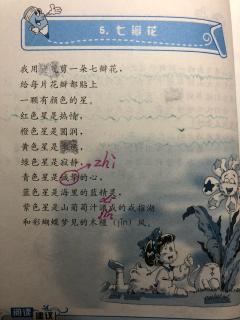 5. 七瓣花
我用 剪一朵七瓣花,
给每片花瓣都贴上
一颗有颜色的星。
红色星是热情,
橙色星是圆润,
黄色星是
绿色星是寂静,
zhì
青色星是诚挚的心,
蓝色星是海里的蓝精灵,
紫色星是山葡萄汁 成的戒指湖
和彩蝴蝶梦见的木槿(jǐn)风。
阅读